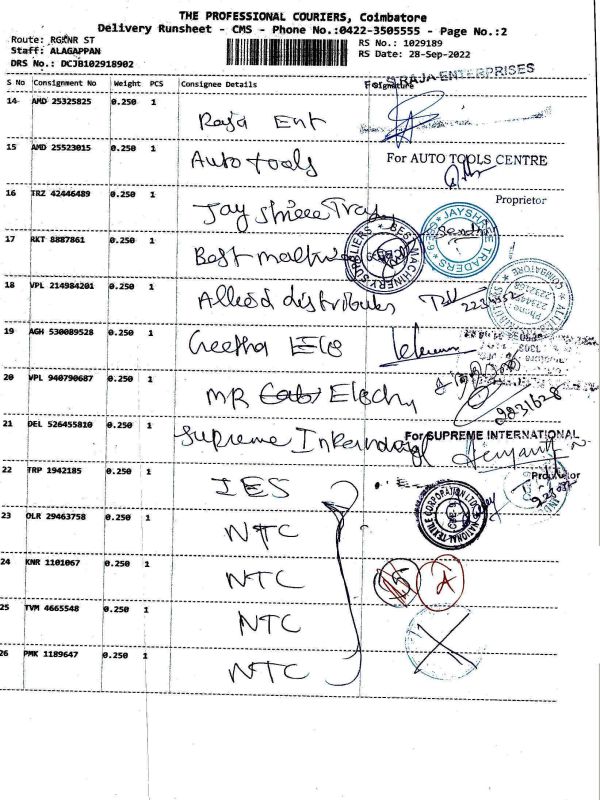 THE PROFESSIONAL COURIERS, Coimbatore
Delivery Runsheet - CMS - Phone No.:0422-3505555 - Page No.:2
Route: RGKNR ST
RS No.: 1029189
Staff: ALAGAPPAN
RS Date: 28-Sep-2022
DRS No.: DCJB102918902
S No Consignment No Weight PCS Consignee Details Signature
RAJA ENTERPRISES
14 AMD 25325825 0.250 1 Raja Ent
15 AMD 25523015 0.250 1 Auto tools For AUTO TOOLS CENTRE
Proprietor
16 TRZ 42446489 0.250 1 Jay Shree
JAYSHREE TRADERS
17 RKT 8887861 0.250 1 Best
BEST MACHINERY SUPPLIERS
18 VPL 214984201 0.250 1 Allied distributes
COIMBATORE
19 AGH 530089528 0.250 1 Geetha
20 VPL 940790687 0.250 1 MR 2231628
21 DEL 526455810 0.250 1 Supreme For SUPREME INTERNATIONAL
Proprietor
22 TRP 1942185 0.250 1 IES
NATIONAL TEXTILE CORPORATION LTD
23 OLR 29463758 0.250 1 NTC
24 KNR 1101067 0.250 1 NTC
25 TVM 4665548 0.250 1 NTC
26 PMK 1189647 0.250 1 NTC